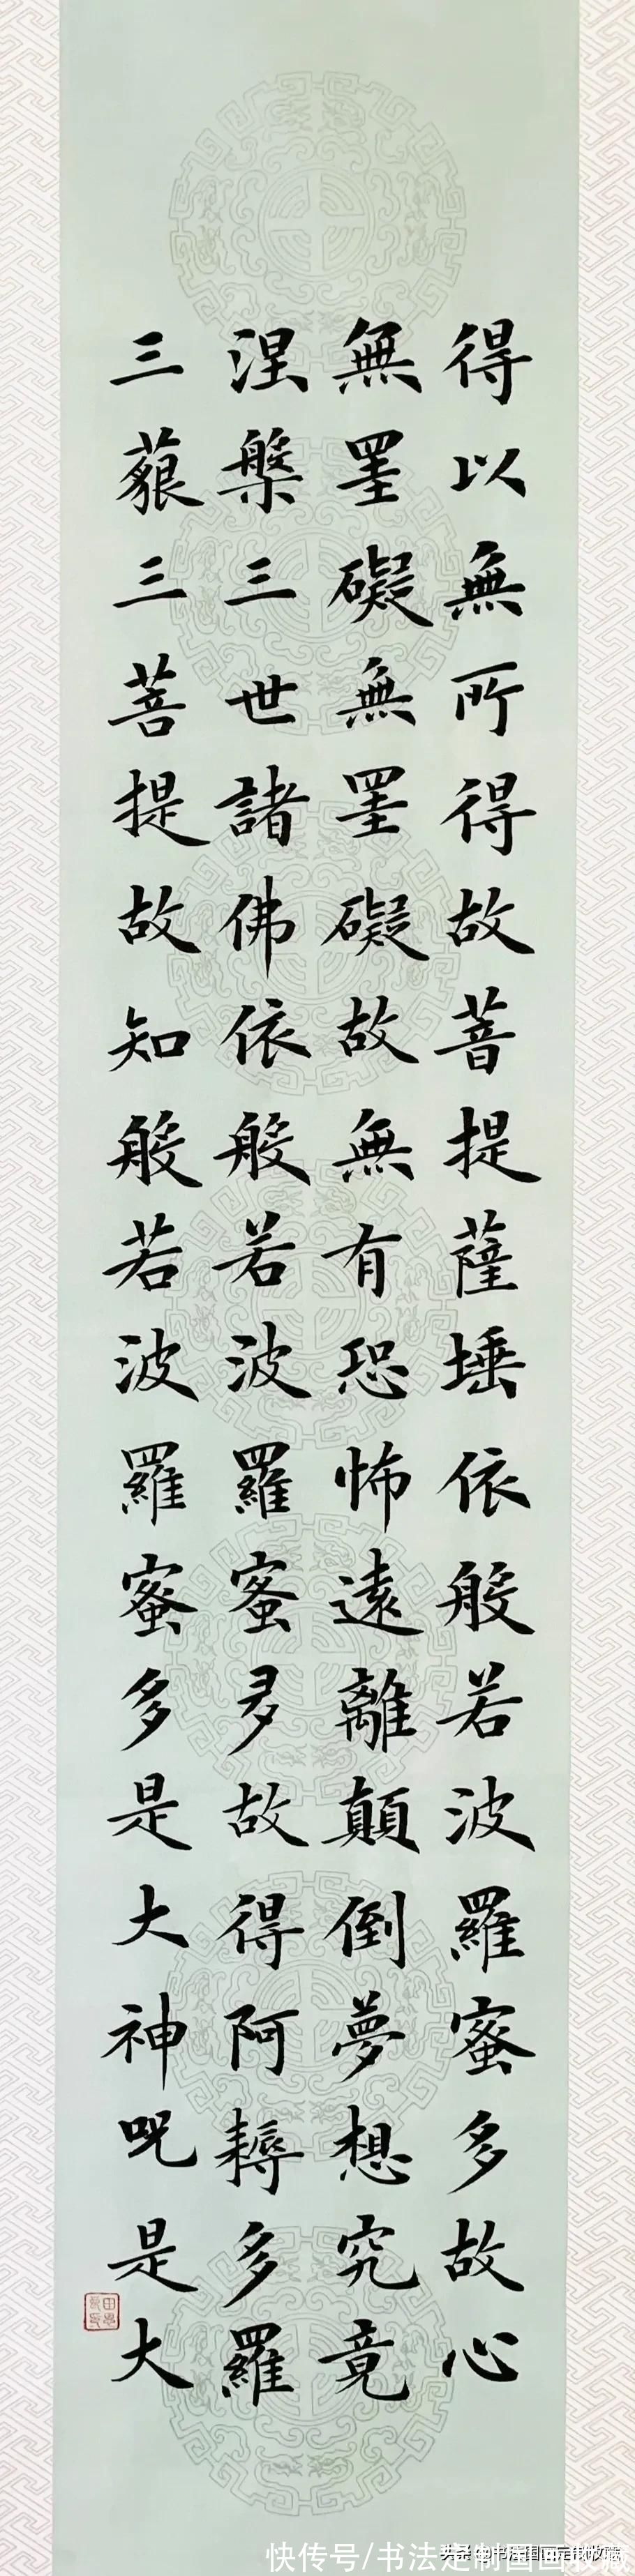 得以無所得故菩提薩埵依般若波羅蜜多故心
無罣礙無罣礙故無有恐怖遠離顛倒夢想究竟
涅槃三世諸佛依般若波羅蜜多故得阿耨多羅
三藐三菩提故知般若波羅蜜多是大神呪是大
快传号/书法定制国画收藏